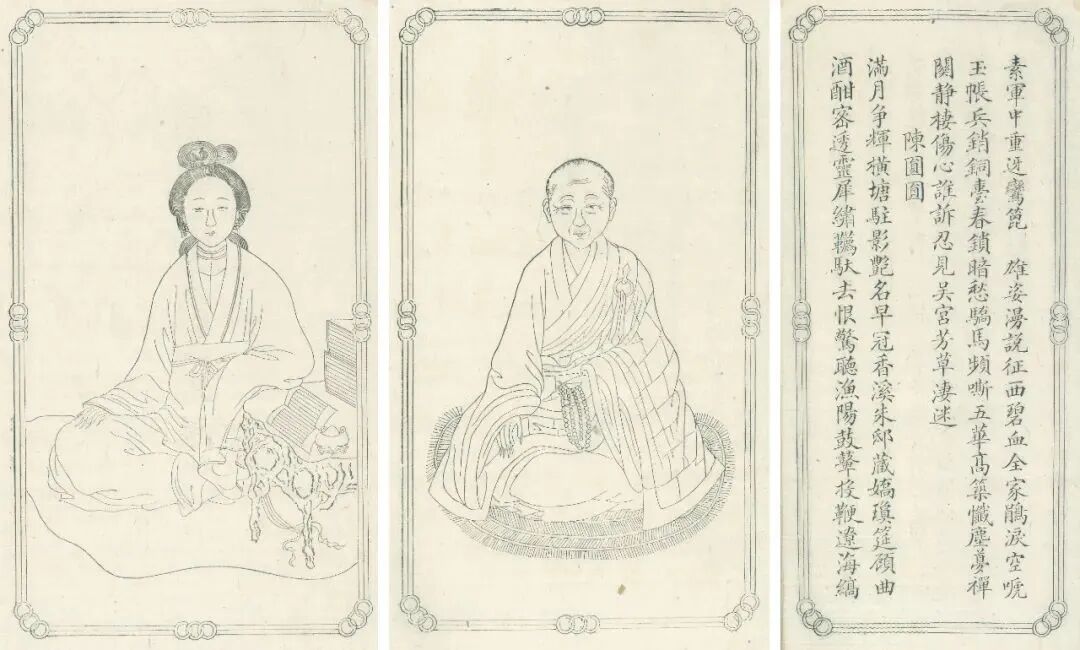 素軍中重迓鸞篦 雄姿漫說征西碧血全家鵑淚空嗁
玉帳兵銷銅臺春鎖暗愁驕馬頻嘶五華高築懺塵夢禪
關靜棲傷心誰訴忍見吳宮芳草淒迷
陳圓圓
滿月爭輝橫塘駐影艷名早冠香溪朱邸藏嬌瓊筵顧曲
酒酣密透靈犀繡韉馱去恨驚聽漁陽鼓鼙投鞭遼海縞